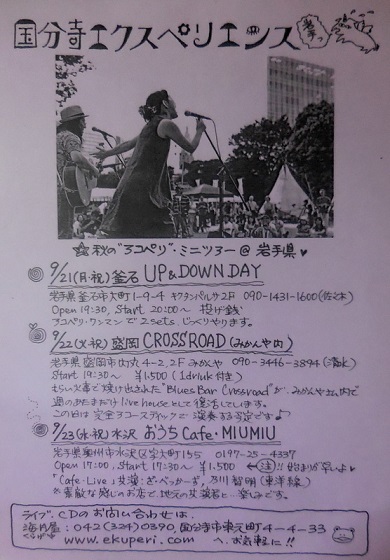 国分寺エクスペリエンス
☆秋の"ヨコペリ"・ミニツアー@岩手県♥
9/21(月・祝)釜石 UP&DOWN DAY
岩手県釜石市大町1-9-4 2F 090-1431-1600(佐々木)
Open 19:30, Start 20:00〜 投げ銭
ワンマンで2sets.じっくりやります。
9/22(火・祝)盛岡 CROSSROAD(みかんや内)
岩手県盛岡市 4-2, 2F みかんや 090-3446-3894(清水)
Start 19:30〜 ¥1500(1drink付き)
もらい火事で焼け出された"Blues Bar Crossroad"が、みかんやさん内で
live houseとして復活しています。
この日は完全アコースティックで演奏する予定です♪
9/23(水・祝)水沢 おうちCafe・MIUMIU
岩手県奥州市水沢区 155 0197-25-4337
Open 17:00, Start 17:30〜 ¥1.500 ←注!! 始まりが早いよ
「Cafe・Live」共演:
素敵な感じのお店で、地元の共演者と…楽しみです。
ライブ、CDのお問い合わせは、
042(324)0390, 国分寺市東元町4-4-33
www.ekuperi.com へ、お気軽に!!